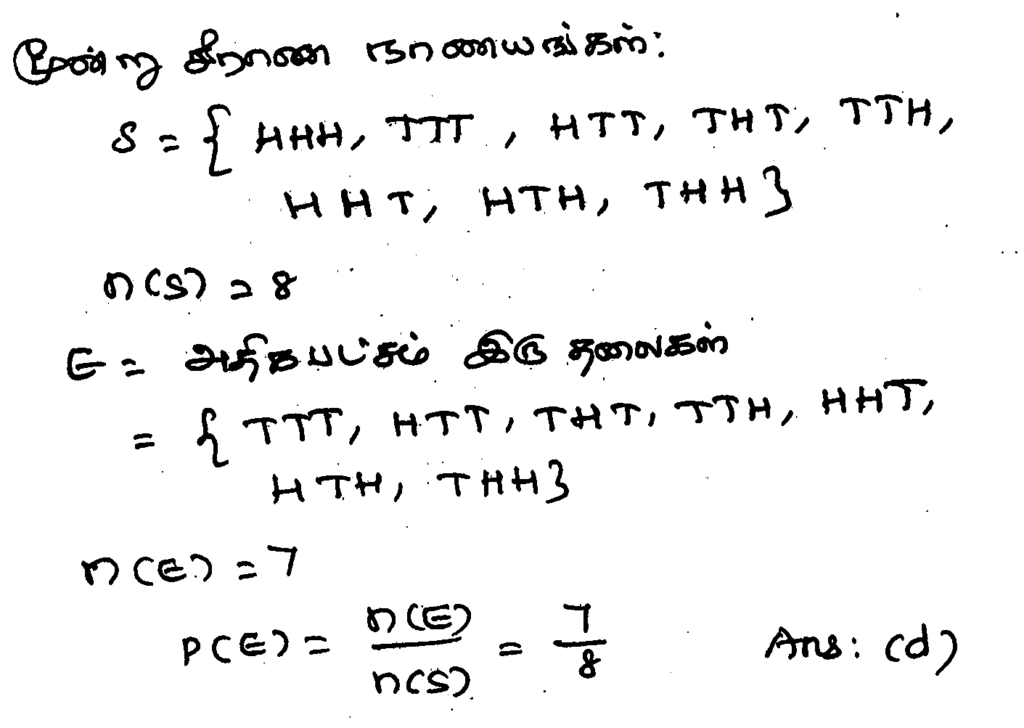 மூன்று சீரான நாணயங்கள்:
S = { HHH, TTT, HTT, THT, TTH,
HHT, HTH, THH }
n(S) = 8
E = அதிகபட்சம் இரு தலைகள்
= { TTT, HTT, THT, TTH, HHT,
HTH, THH }
n(E) = 7
P(E) = n(E)/n(S) = 7/8 Ans: (d)